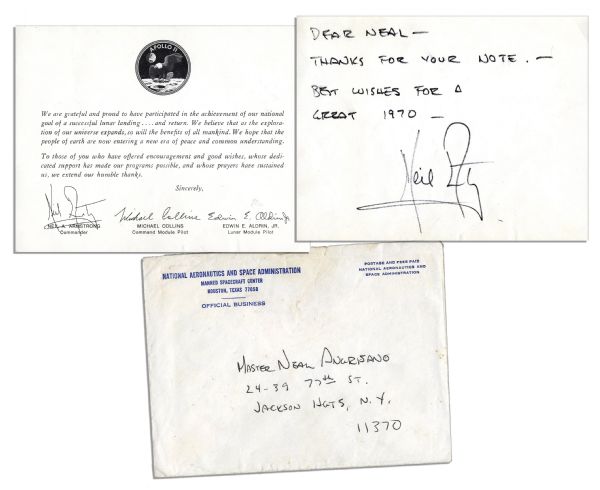 APOLLO 11
We are grateful and proud to have participated in the achievement of our national
goal of a successful lunar landing . . . . and return. We believe that as the explora-
tion of our universe expands, so will the benefits of all mankind. We hope that the
people of earth are now entering a new era of peace and common understanding.
To those of you who have offered encouragement and good wishes, whose dedi-
cated support has made our programs possible, and whose prayers have sustained
us, we extend our humble thanks.
Sincerely,
Michael Collins Edwin E. Aldrin Jr
NEIL A. ARMSTRONG MICHAEL COLLINS EDWIN E. ALDRIN, JR.
Commander Command Module Pilot Lunar Module Pilot
DEAR NEAL —
THANKS FOR YOUR NOTE. —
BEST WISHES FOR A
GREAT 1970 —
Neil
NATIONAL AERONAUTICS AND SPACE ADMINISTRATION
MANNED SPACECRAFT CENTER
HOUSTON, TEXAS 77058
OFFICIAL BUSINESS
POSTAGE AND FEES PAID
NATIONAL AERONAUTICS AND
SPACE ADMINISTRATION
MASTER NEAL ANGRISANO
24-39 77th ST.
JACKSON HGTS, N.Y.
11370